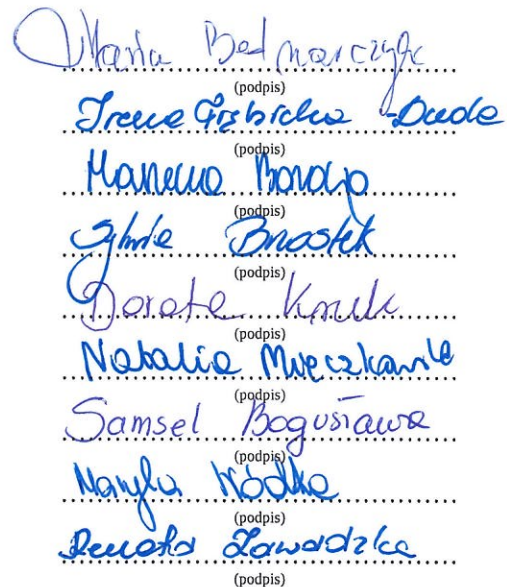 Maria Bednarczyk
(podpis)
Irena Grzbicka-Duda
(podpis)
Marzena
(podpis)
Sylwia Brostek
(podpis)
Dorota Kruk
(podpis)
Natalia
(podpis)
Samsel Bogusława
(podpis)
Maryla Wódka
(podpis)
Renata Zawadzka
(podpis)